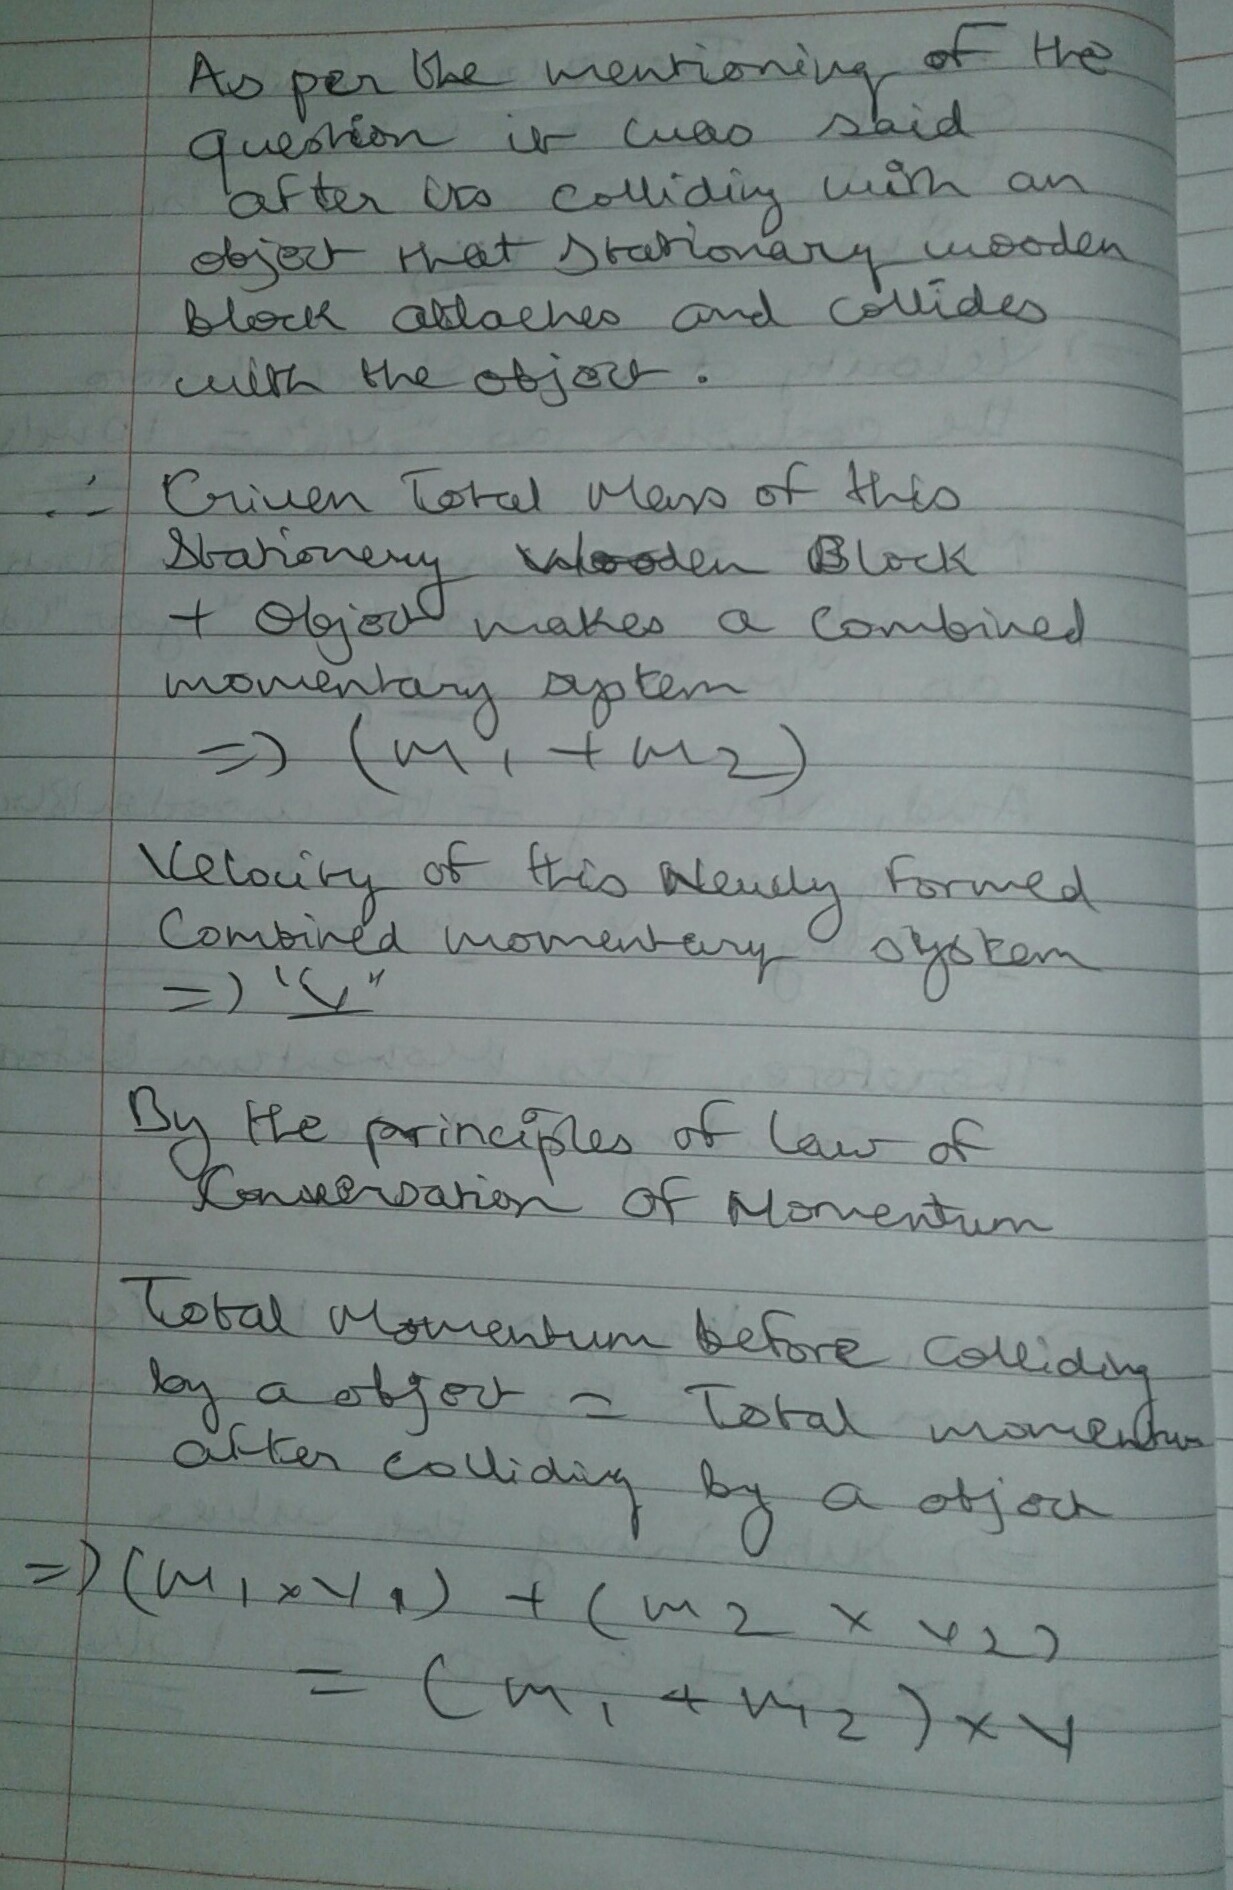 As per the mentioning of the
question it was said
after its colliding with an
object that stationary wooden
block attaches and collides
with the object.
∴ Given Total Mass of this
Stationery Wooden Block
+ Object makes a combined
momentary system
=> (m1 + m2)
Velocity of this Newly formed
Combined momentary system
=> "V"
By the principles of law of
Conversation of Momentum
Total Momentum before colliding
by a object = Total momentum
after colliding by a object
=> (m1 x v1) + (m2 x v2)
= (m1 + m2) x v